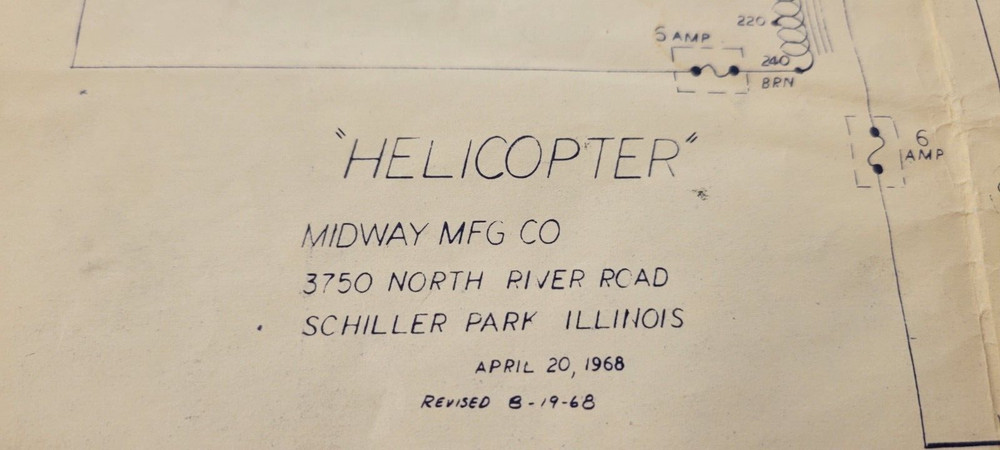 220
5 AMP
240
BRN
6
AMP
"HELICOPTER"
MIDWAY MFG CO
3750 NORTH RIVER ROAD
SCHILLER PARK ILLINOIS
APRIL 20, 1968
REVISED 8-19-68